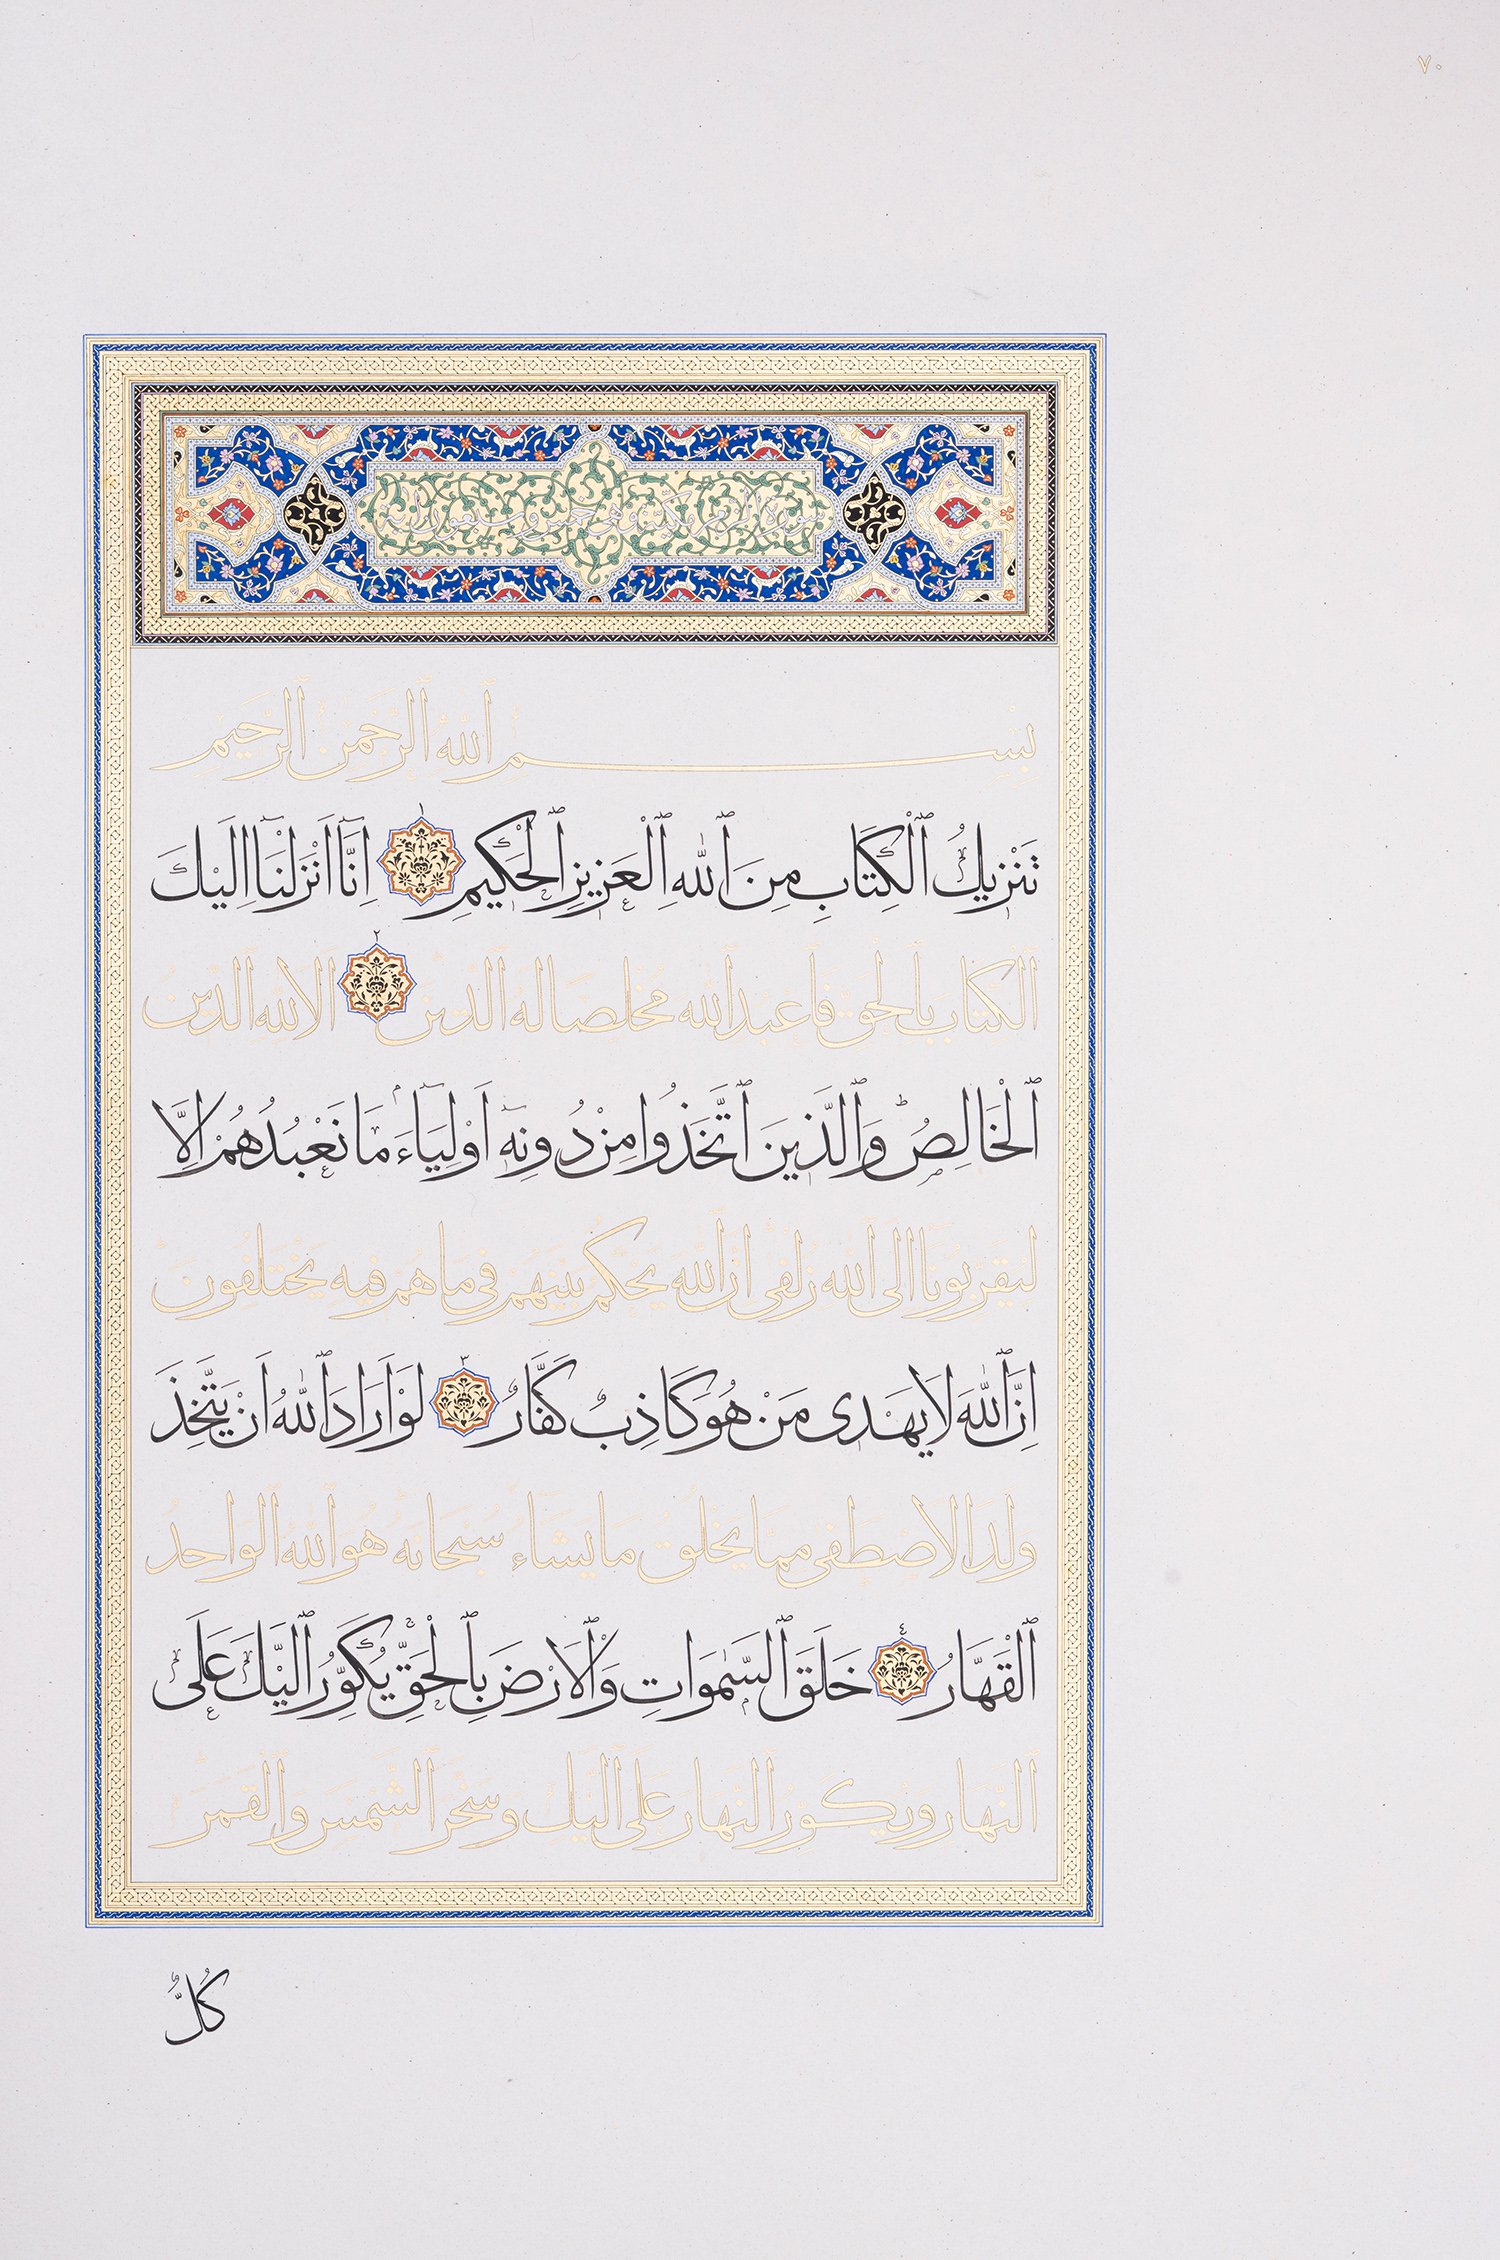 ٧٠
سورة الزمر مكية وهي خمس وسبعون آية
بِسْمِ ٱللّٰهِ ٱلرَّحْمٰنِ ٱلرَّحِيمِ
تَنْزِيلُ ٱلْكِتَابِ مِنَ ٱللّٰهِ ٱلْعَزِيزِ ٱلْحَكِيمِ ١ اِنَّٓا اَنْزَلْنَٓا اِلَيْكَ
ٱلْكِتَابَ بِٱلْحَقِّ فَٱعْبُدِ ٱللّٰهَ مُخْلِصًا لَهُ ٱلدِّينَ ٢ اَلَا لِلّٰهِ ٱلدِّينُ
ٱلْخَالِصُ ط وَٱلَّذِينَ ٱتَّخَذُوا مِنْ دُونِهِٓ اَوْلِيَٓاءَ م مَا نَعْبُدُهُمْ اِلَّا
لِيُقَرِّبُونَٓا اِلَى ٱللّٰهِ زُلْفٰى اِنَّ ٱللّٰهَ يَحْكُمُ بَيْنَهُمْ فِى مَا هُمْ فِيهِ يَخْتَلِفُونَ ط
اِنَّ ٱللّٰهَ لَا يَهْدِى مَنْ هُوَ كَاذِبٌ كَفَّارٌ ٣ لَوْ اَرَادَ ٱللّٰهُ اَنْ يَتَّخِذَ
وَلَدًا لَاصْطَفٰى مِمَّا يَخْلُقُ مَا يَشَٓاءُ سُبْحَانَهُ هُوَ ٱللّٰهُ ٱلْوَاحِدُ
ٱلْقَهَّارُ ٤ خَلَقَ ٱلسَّمٰوَاتِ وَٱلْاَرْضَ بِٱلْحَقِّ ج يُكَوِّرُ ٱلَّيْلَ عَلَى
ٱلنَّهَارِ وَيُكَوِّرُ ٱلنَّهَارَ عَلَى ٱلَّيْلِ وَسَخَّرَ ٱلشَّمْسَ وَٱلْقَمَرَ ط
كُلٌّ